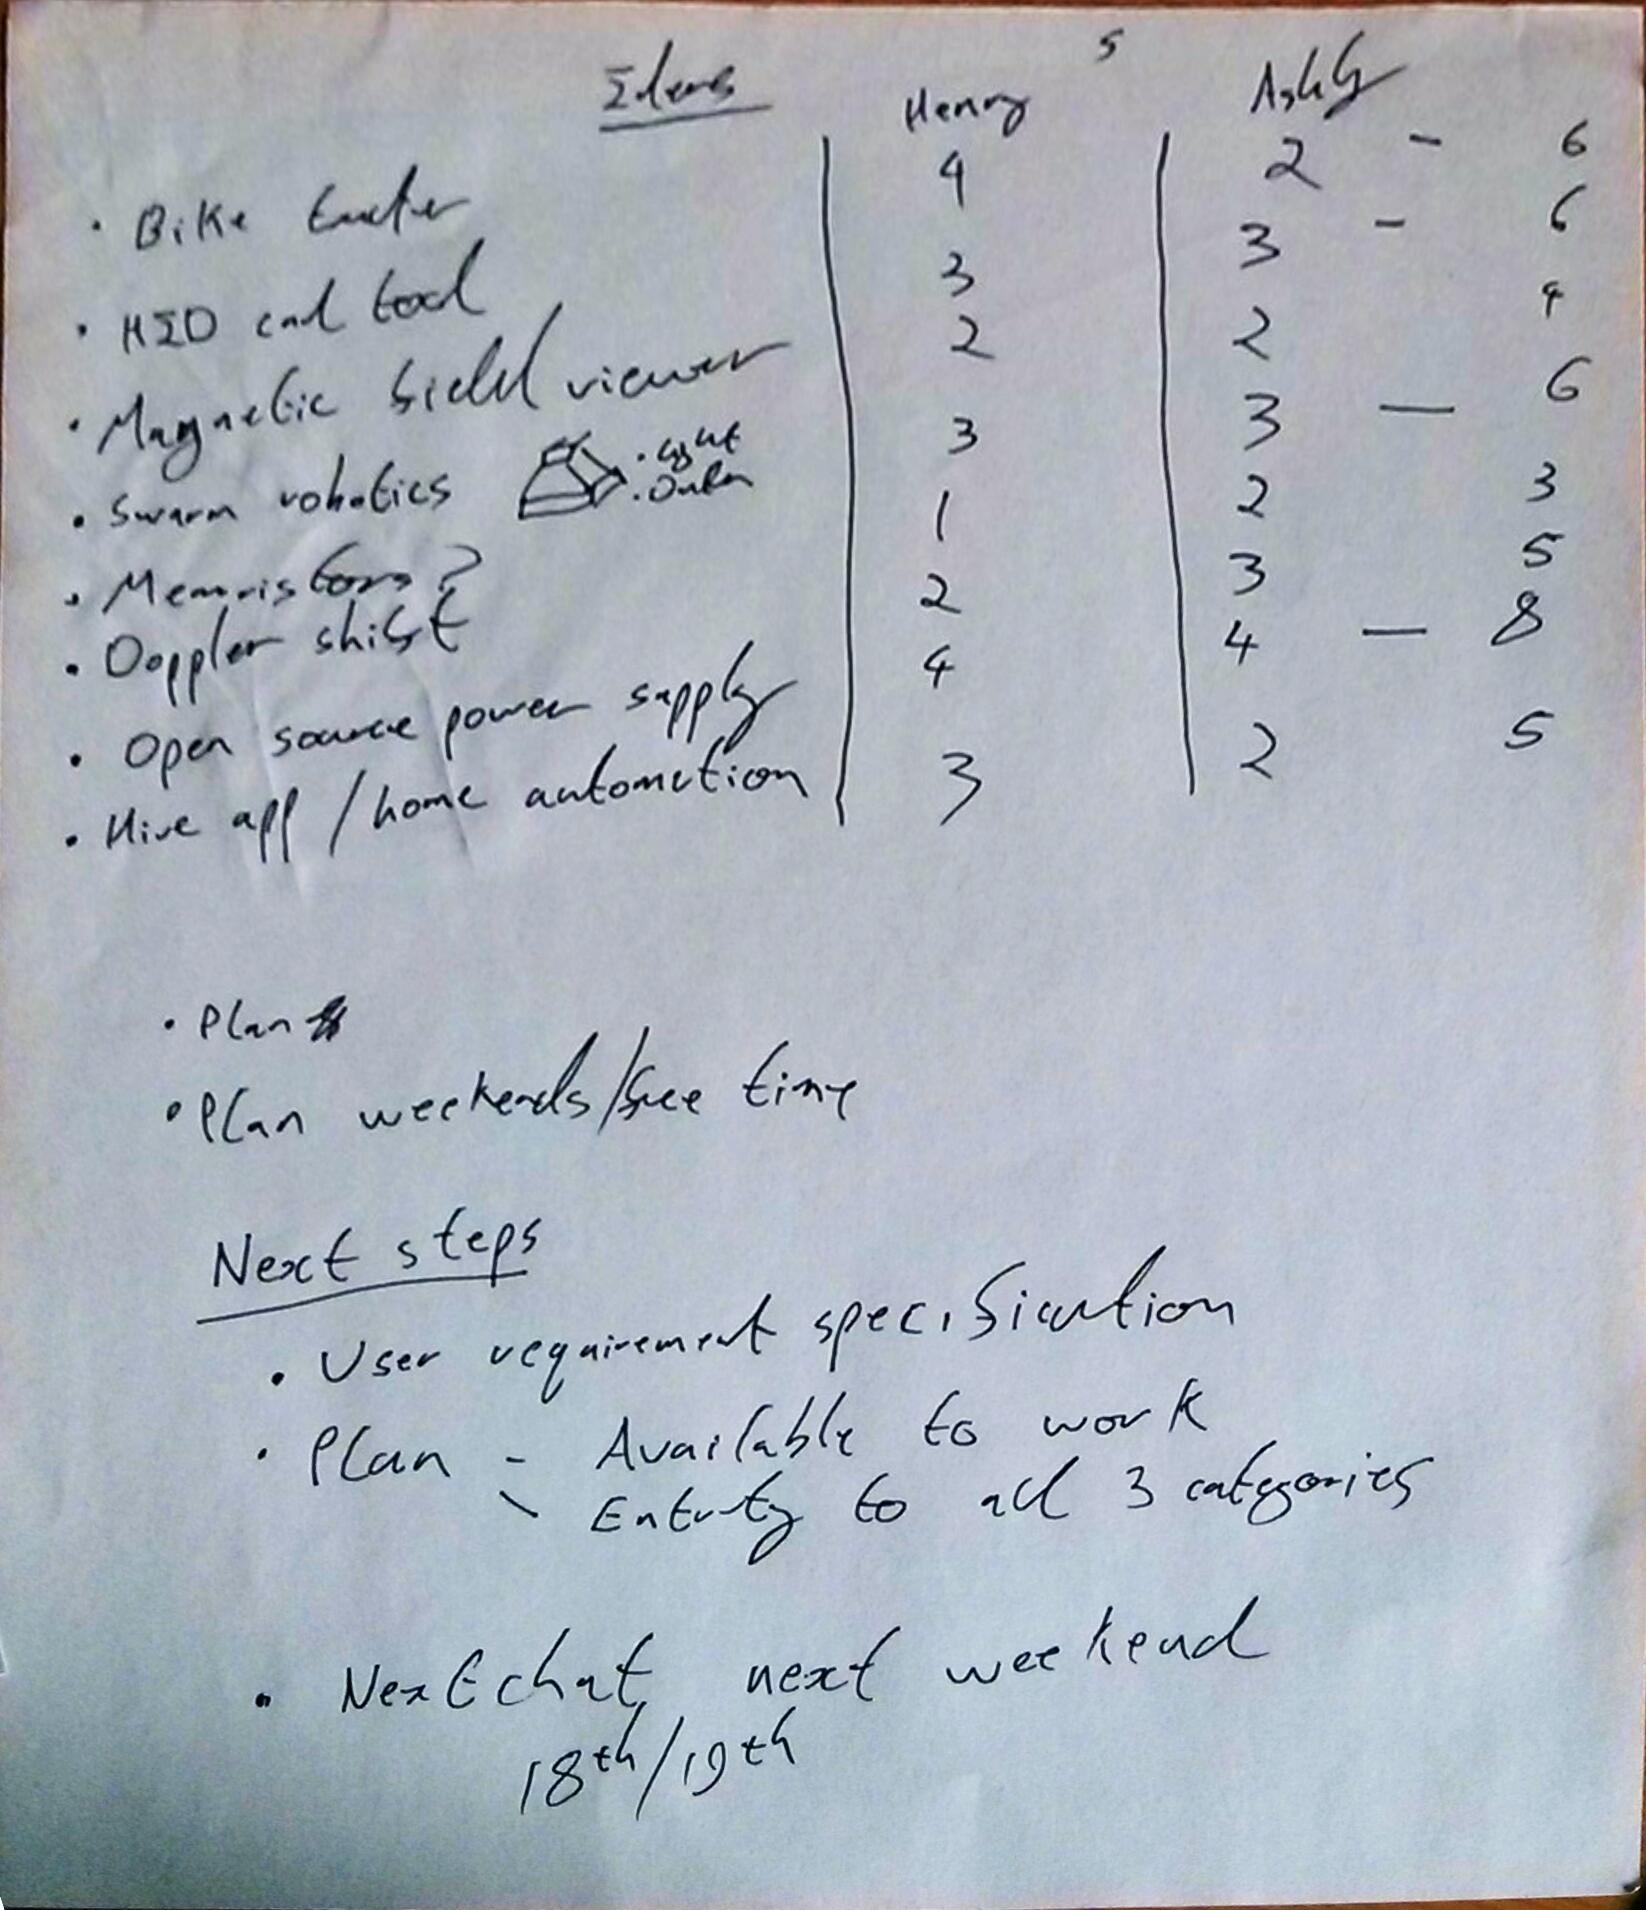 Ideas Henry 5 Ashly
• Bike tracker 4 2 - 6
• HID card tool 3 3 - 6
• Magnetic field viewer 2 2 4
• Swarm robotics • Light 3 3 — 6
•
• Memristors? 1 2 3
• Doppler shift 2 3 5
• Open source power supply 4 4 — 8
• Hive app / home automation 3 2 5
• Plan
• Plan weekends/free time
Next steps
• User requirement specification
• Plan - Available to work
\ to all 3 categories
• Next chat next weekend
18th/19th